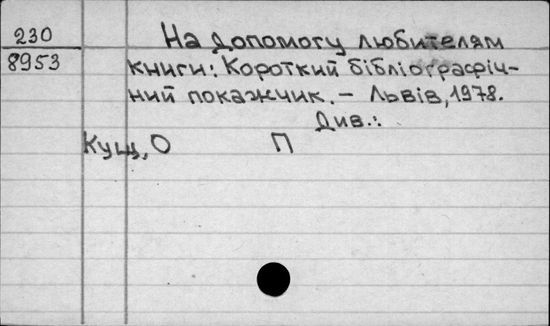 230
8953
На допомогу любителям
книги: Короткий бібліографіч-
ний покажчик. – Львів, 1978.
Див.:
Кущ, О П